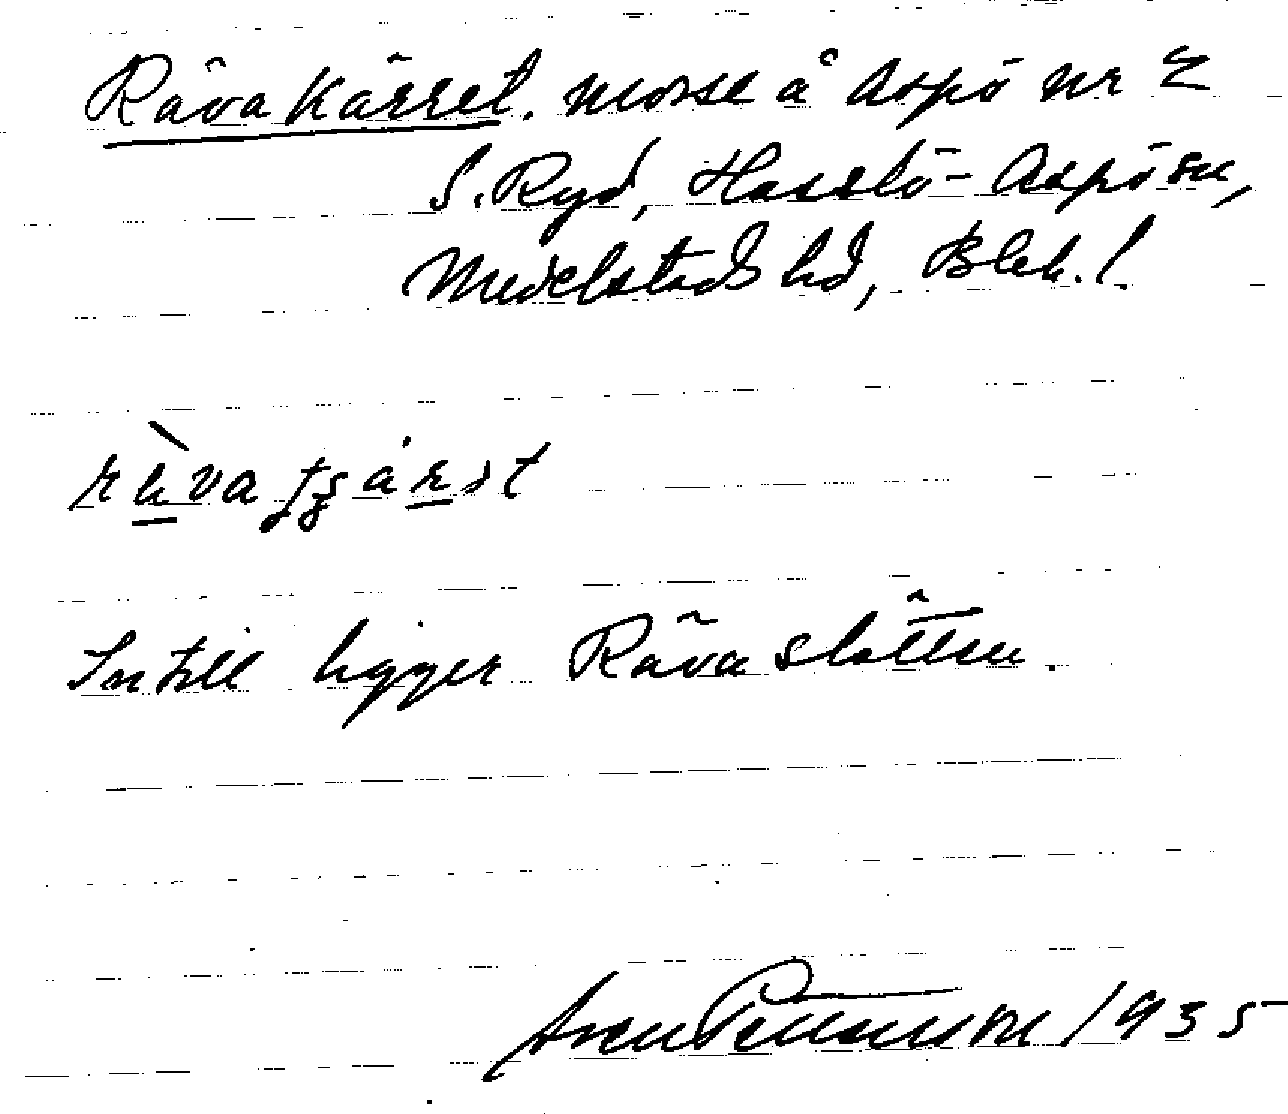 Rävakärret. mosse å Aspö nr 2
S. Ryd, Hasslö-Aspö sn,
Medelstads hd, Blek. l.
Intill ligger Rävaslätten.
Pettersson 1935